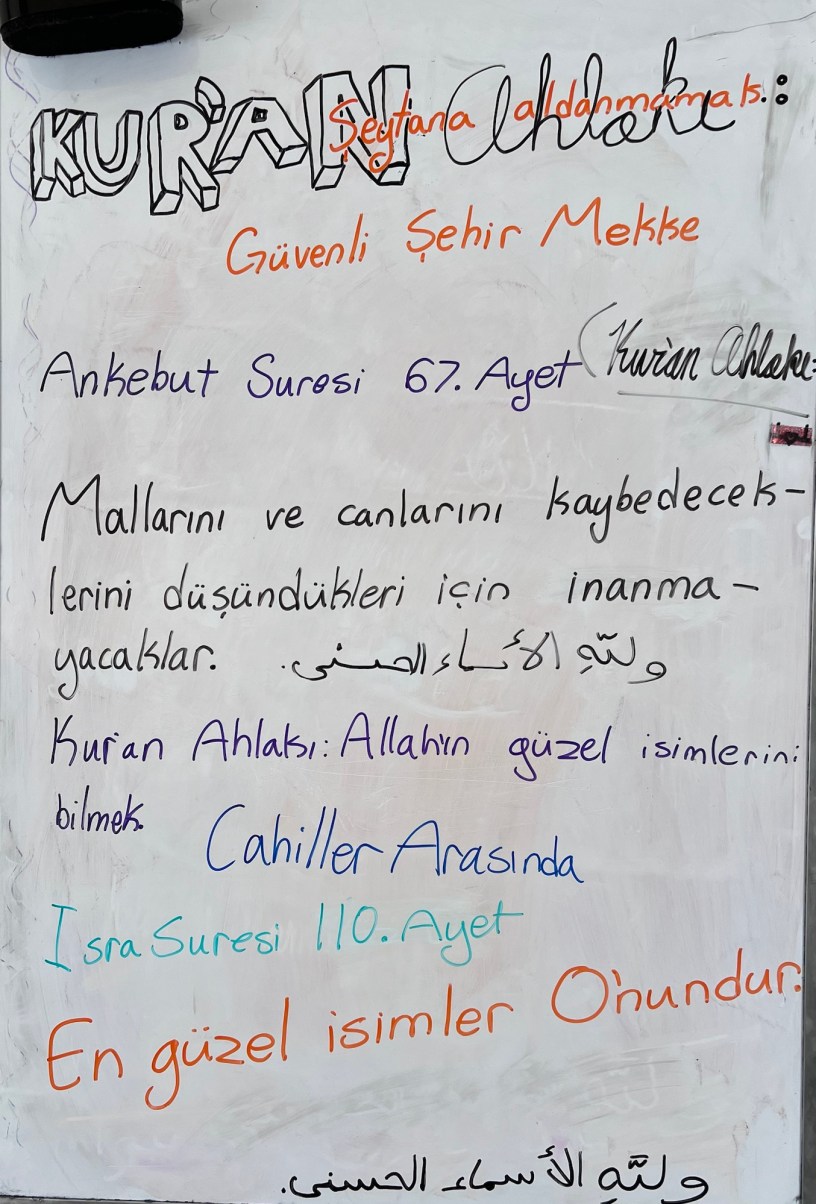 KUR'AN Ahlakı:
Şeytana aldanmamak.
Güvenli Şehir Mekke
Ankebut Suresi 67. Ayet (Kur'an Ahlakı:
Mallarını ve canlarını kaybedecek-
lerini düşündükleri için inanma-
yacaklar. وللّهِ الأسماء الحسنى.
Kur'an Ahlakı: Allah'ın güzel isimlerini
bilmek.
Cahiller Arasında
Isra Suresi 110. Ayet
En güzel isimler O'nundur.
وللّهِ الأسماء الحسنى.